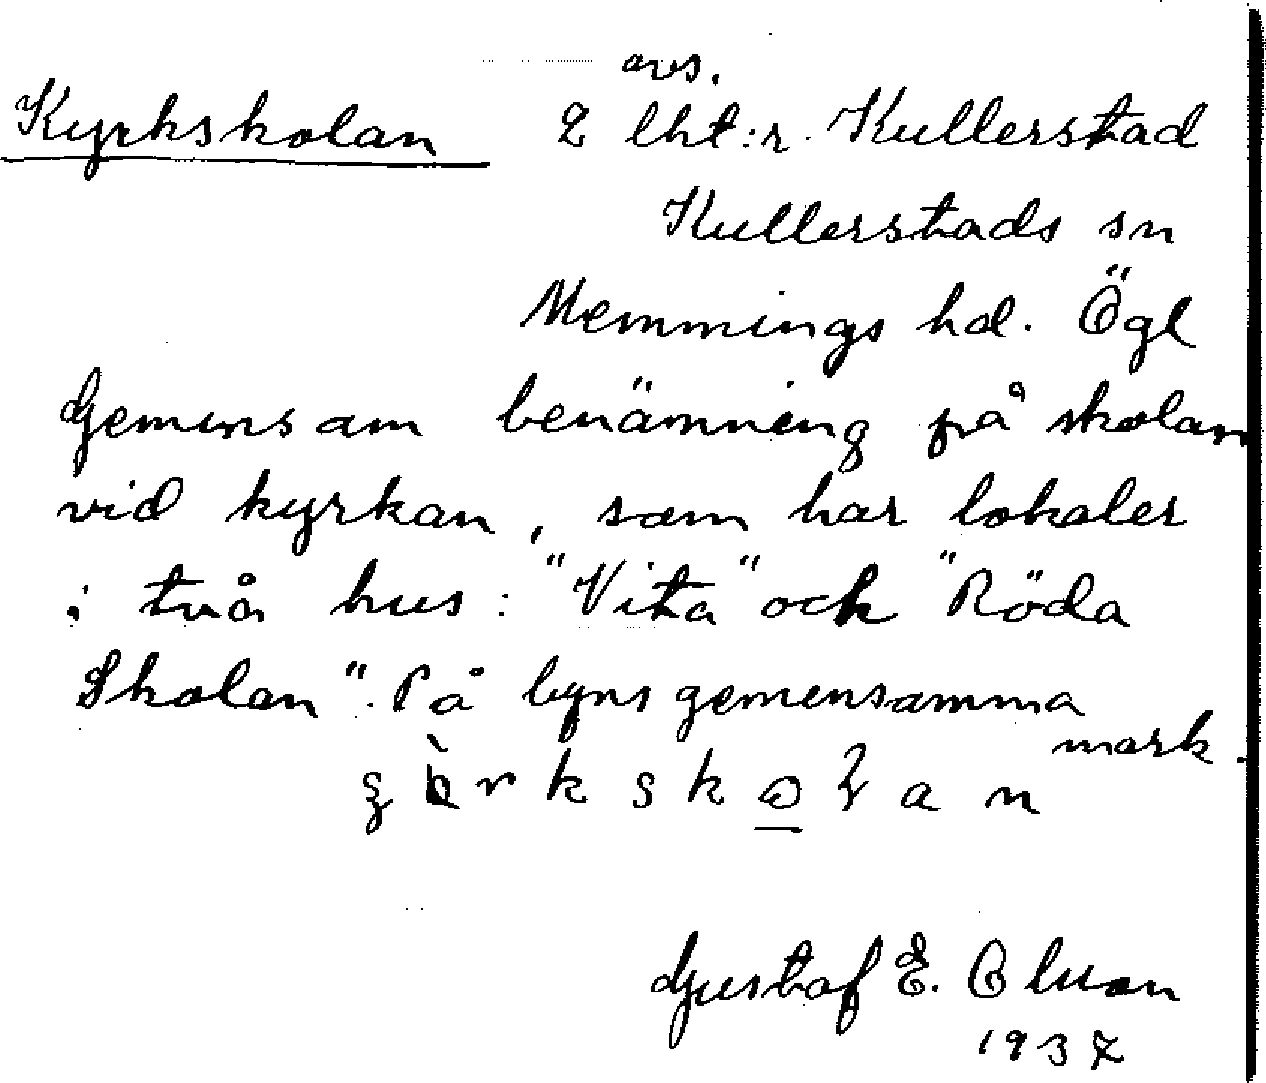 avs.
Kyrkskolan 2 lht:r. Kullerstad
Kullerstads sn
Memmings hd. Ögl
Gemensam benämning på skolan
vid kyrkan, som har lokaler
i två hus: "Vita" och "Röda
Skolan". På byns gemensamma
mark.
Gustaf E.
1937